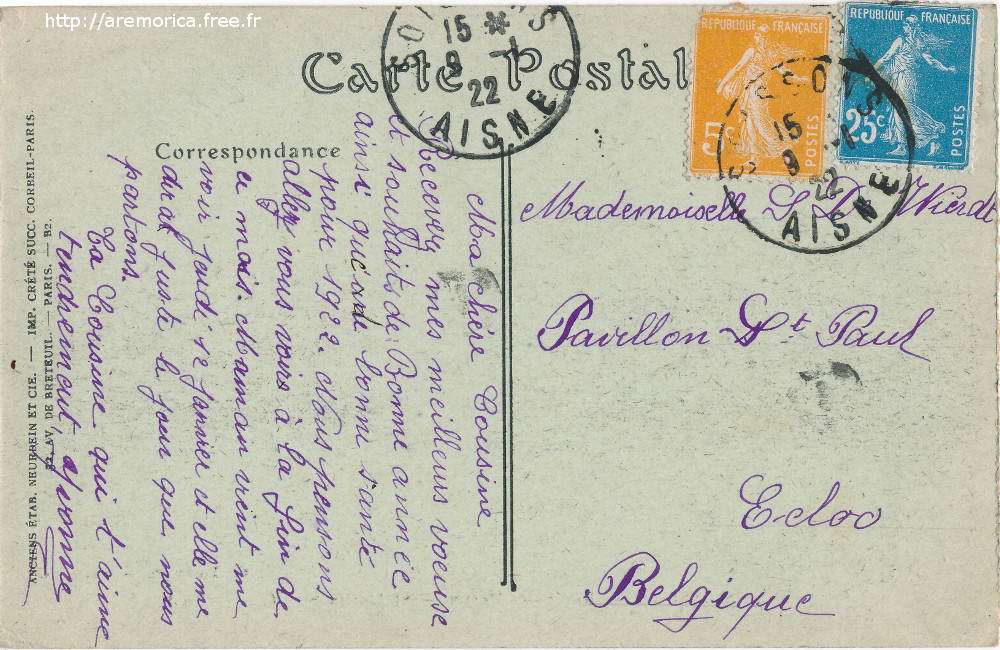 http://aremorica.free.fr
Carte Postal
Correspondance
SOISSONS
15 *
9 - 1
22
AISNE
REPUBLIQUE FRANÇAISE
5c
POSTES
REPUBLIQUE FRANÇAISE
25c
POSTES
SOISSONS
15
9 - 1
22
AISNE
Ma chère Cousine
Recevez mes meilleurs voeuse
et souhaits de Bonne année
ainsi que de bonne santé
pour 1922. Nous pensons
aller vous voirs à la fin de
ce mois. Maman vient me
voir jeudi 12 janvier et elle me
dirat juste le jour que nous
partons.
Ta Cousine qui t'aime
tendrement, Yvonne
Mademoiselle L D Wierdt
Pavillon St Paul
Ecloo
Belgique
ANCIENS ÉTAB. NEURDEIN ET CIE. — IMP. CRÉTÉ SUCC. CORBEIL-PARIS.
52, AV. DE BRETEUIL. — PARIS. — B2.